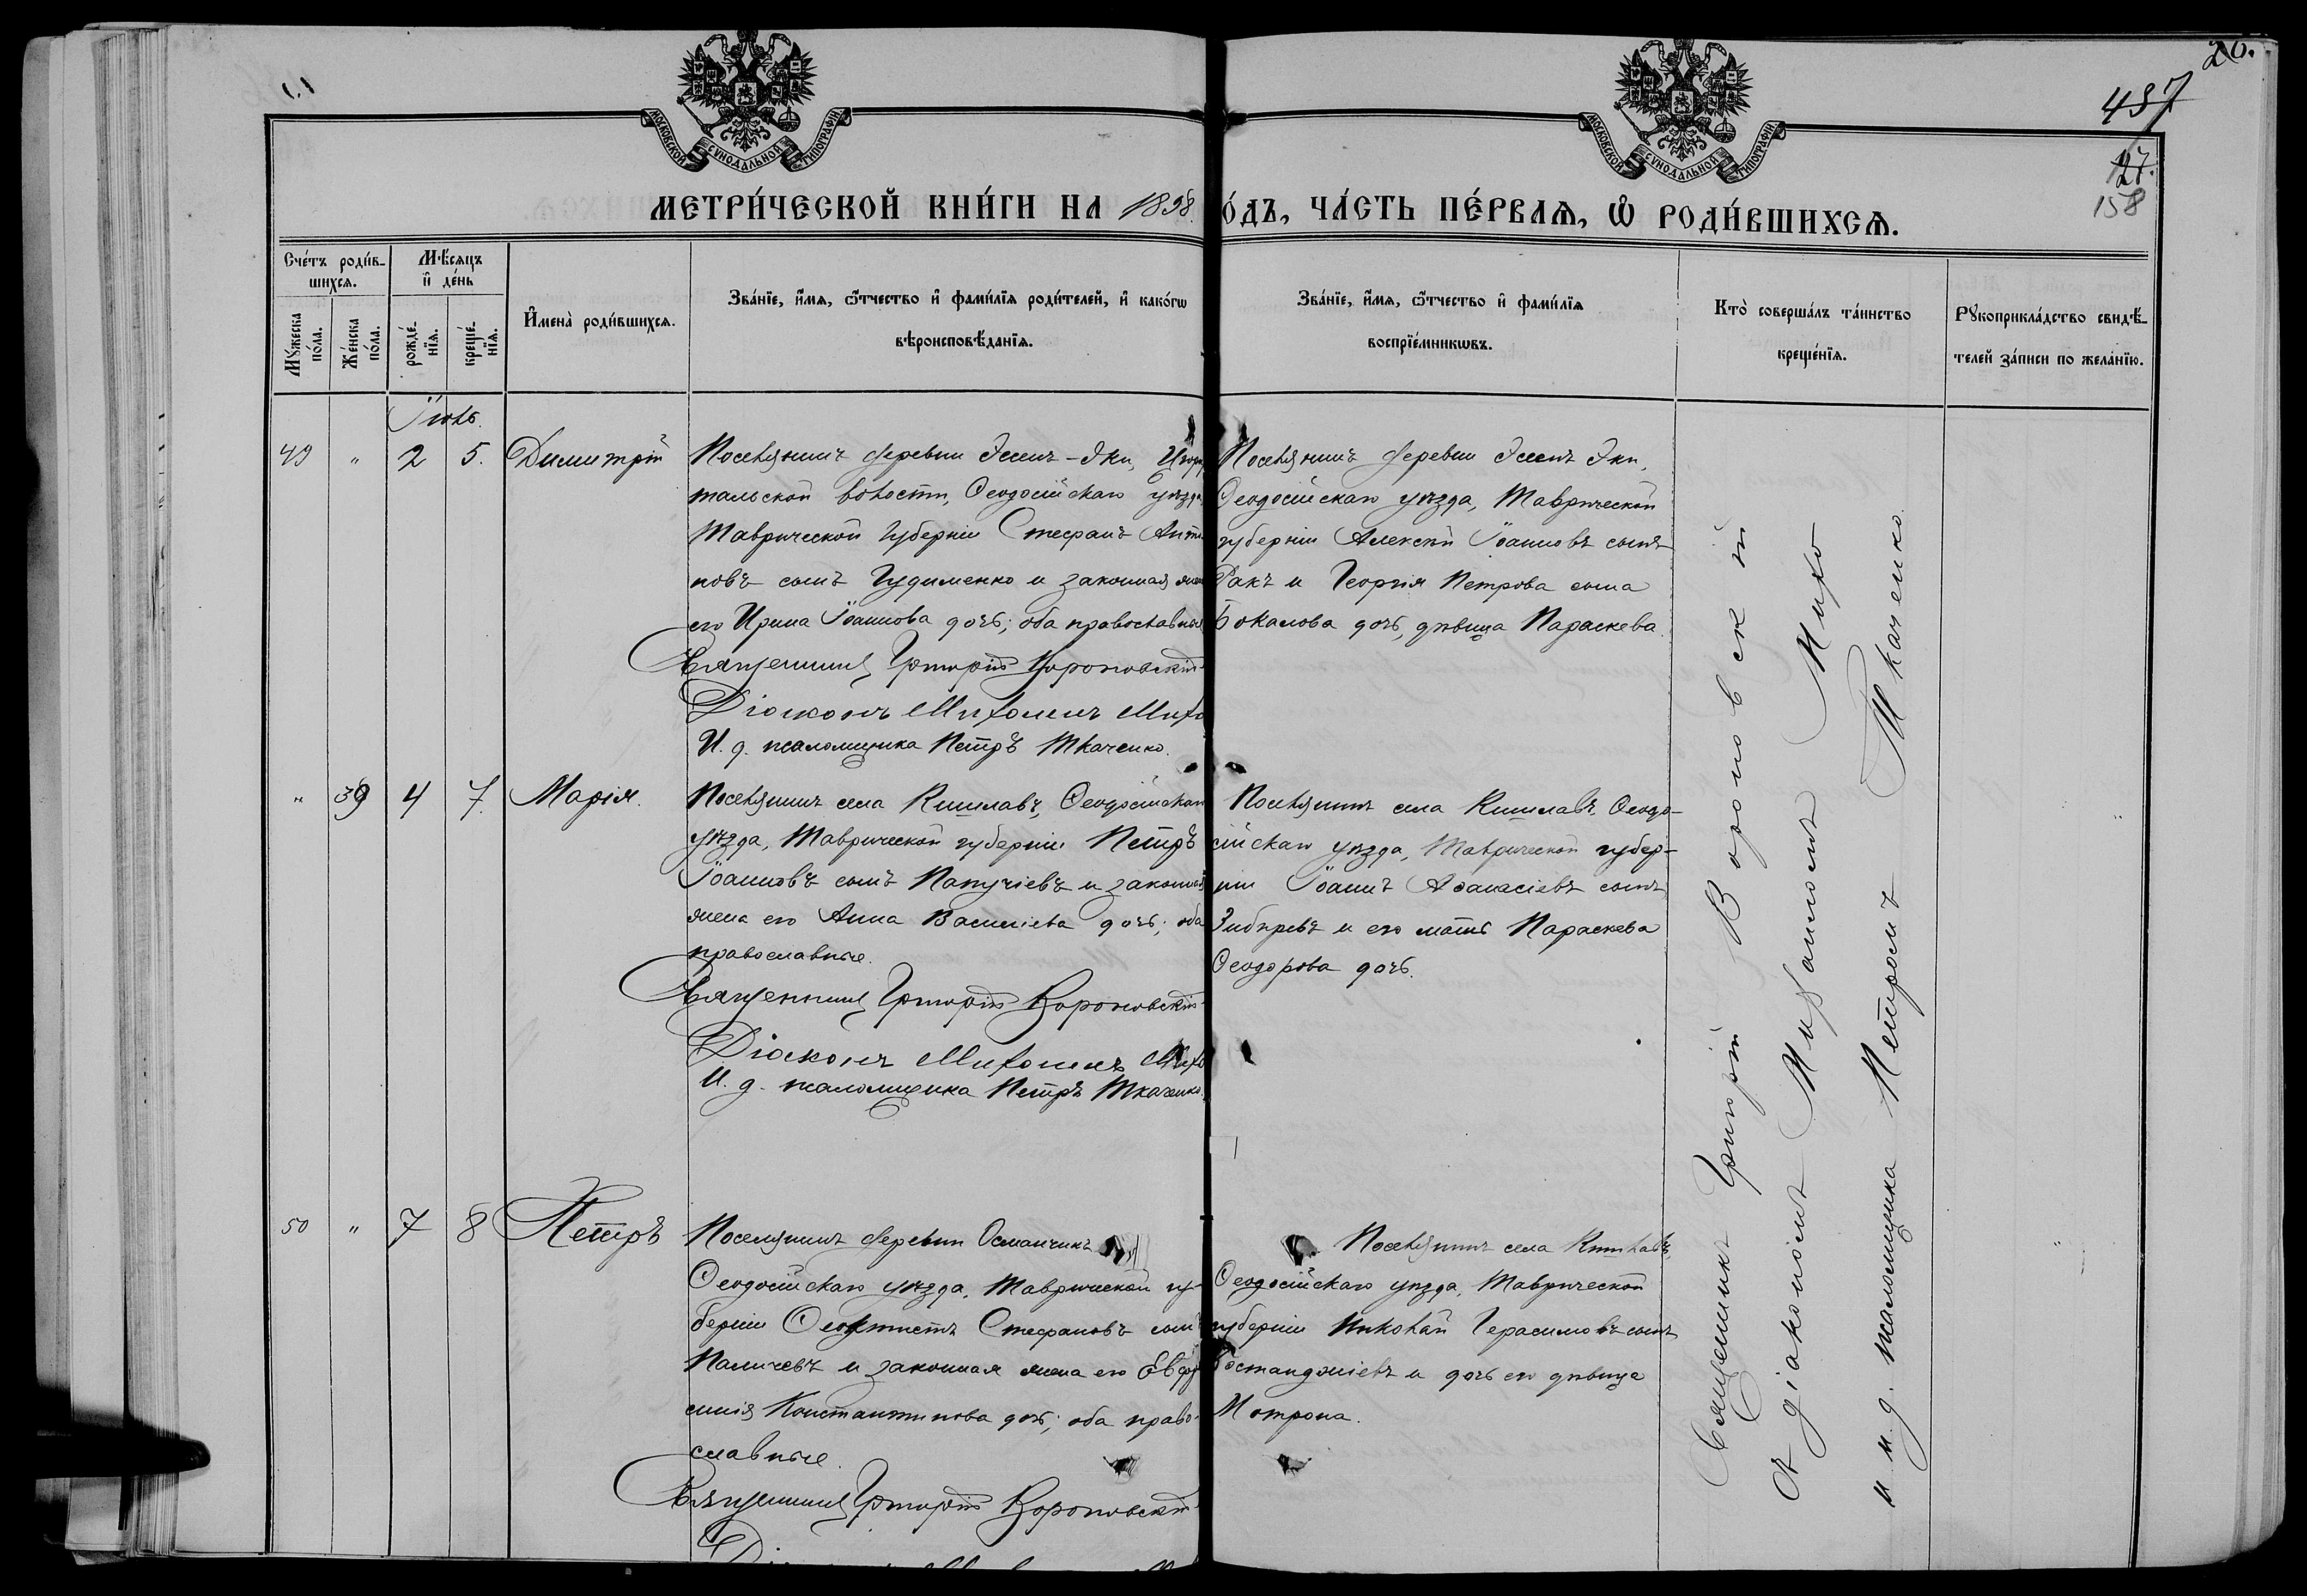 26.
437
127.
158
МОСКОВСКОЙ СѴНОДАЛЬНОЙ ТИПОГРАФІИ
МОСКОВСКОЙ СѴНОДАЛЬНОЙ ТИПОГРАФІИ
МЕТРИ́ЧЕСКОЙ КНИ́ГИ НА 1898. О́ДЪ, ЧА́СТЬ ПЕ́РВАЯ, Ѡ҆ РОДИ́ВШИХСЯ.
Сче́тъ роди́в-
шихся.
Мꙋ́жеска по́ла.
Же́нска по́ла.
Мѣ́сяцъ
и҆ де́нь
рожде́-
нїя.
креще́-
нїя.
И҆мена̀ роди́вшихся.
Зва́нїе, и҆́мя, ѻ҆́тчество и҆ фами́лїя роди́телей, и҆ како́гѡ
вѣроисповѣ́данїя.
Зва́нїе, и҆́мя, ѻ҆́тчество и҆ фами́лїя
воспрїе́мникѡвъ.
Кто̀ соверша́лъ та́инство
креще́нїя.
Рꙋкоприкла́дство свидѣ́-
телей за́писи по жела́нїю.
Іюль.
49 " 2 5. Димитрій
Поселянинъ деревни Эссенъ-Эки,
тальской волости, Ѳеодосійскаго уѣзда
Таврической губерніи Стефанъ Анто
новъ сынъ Гудименко и законная жена
его Ирина Іоаннова дочь; оба православные
Священникъ Григорій Вороновскій
Діаконъ Михаилъ Михо
И. д. псаломщика Петръ Ткаченко.
Поселянинъ деревни Эссенъ Эки,
Ѳеодосійскаго уѣзда, Таврической
губерніи Алексѣй Іоанновъ сынъ
Ракъ и Георгія Петрова сына
Бокалова дочь, дѣвица Параскева.
" 39 4 7. Марія.
Поселянинъ села Кишлавъ, Ѳеодосійскаго
уѣзда, Таврической губерніи Петръ
Іоанновъ сынъ Папучіевъ и законная
жена его Анна Василіева дочь; оба
православные.
Священникъ Григорій Вороновскій
Діаконъ Михаилъ Михо
И. д. псаломщика Петръ Ткаченко.
Поселянинъ села Кишлавъ, Ѳеодо-
сійскаго уѣзда, Таврической губер-
ніи Іоаннъ Аѳанасіевъ сынъ
Зибировъ и его мать Параскева
Ѳеодорова дочь.
"
50 " 7 8 Петръ
Поселянинъ деревни Османчикъ
Ѳеодосійскаго уѣзда, Таврической гу-
берніи Ѳеоктистъ Стефановъ сынъ
Паличевъ и законная жена его Евфро
синія Константинова дочь; оба право-
славные.
Священникъ Григорій Вороновскій
Поселянинъ села Кишлавъ,
Ѳеодосійскаго уѣзда, Таврической
губерніи Николай Герасимовъ сынъ
Бостанджіевъ и дочь его дѣвица
Мотрона.
"
Священникъ Григорій Вороновскій
съ діакономъ Михаиломъ Михо
и и. д. псаломщика Петромъ Ткаченко.